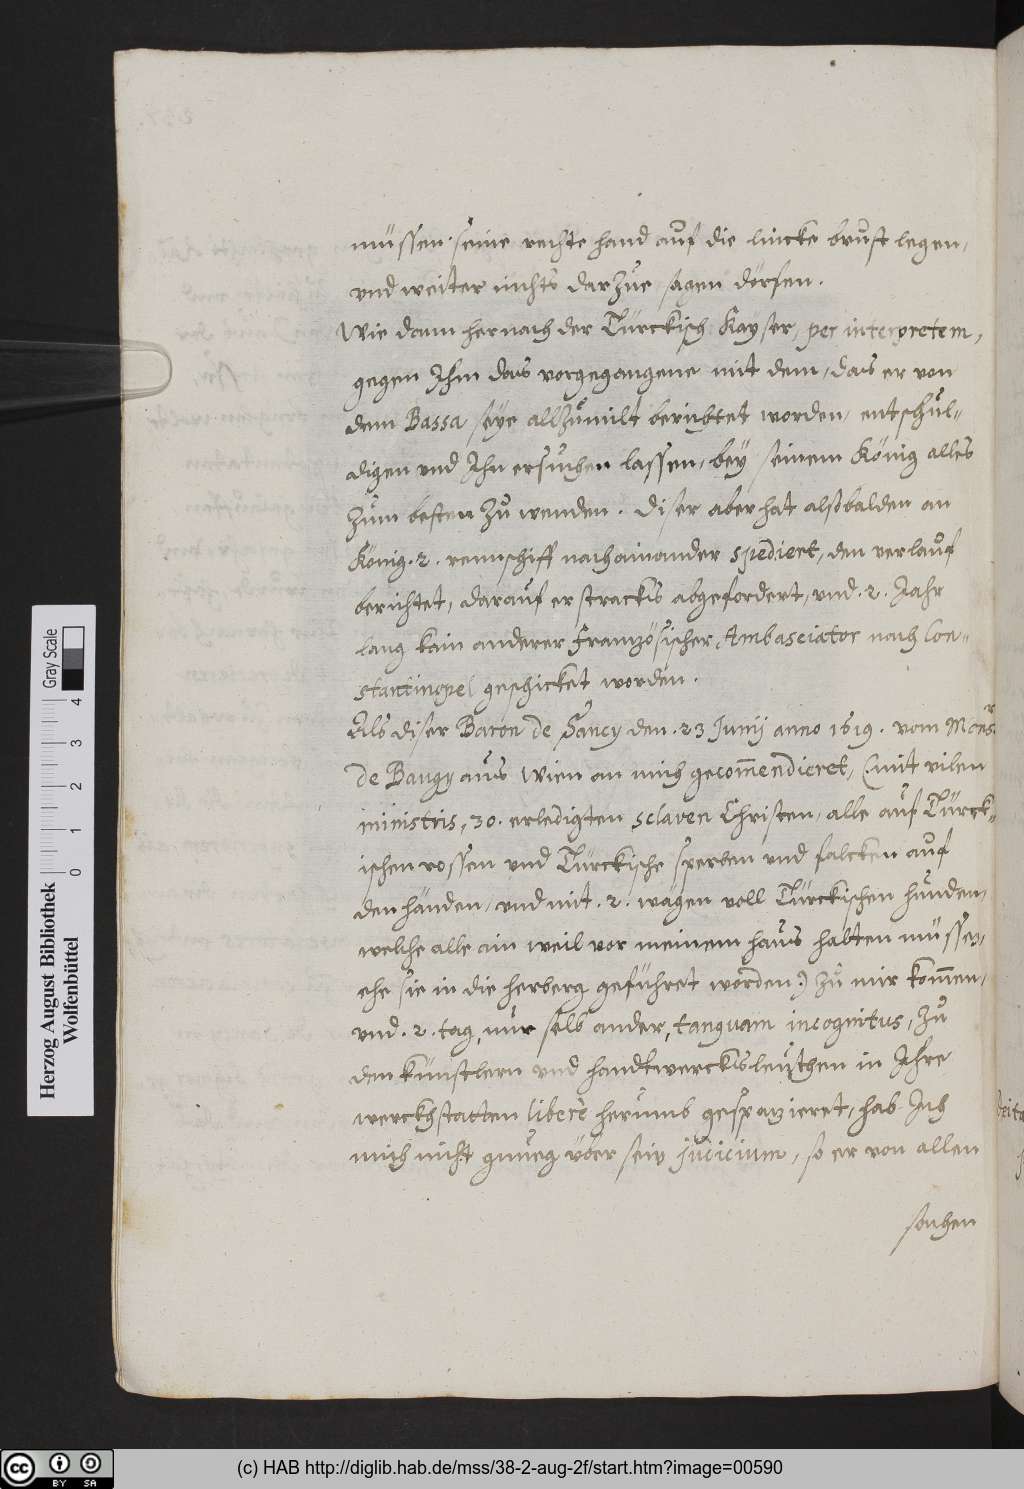 müssen, seine rechte hand auf die lincke brust legen,
vnd weiter nichts darzue sagen dörfen.
Wie dann hernach der Türckisch Kayser, per interpretem,
gegen Ihm das vorgegangene mit dem, das er von
dem Bassa seye allzumilt berichtet worden, entschul-
digen vnd Ihn ersuchen lassen, bey seinem König alles
zum besten zu wenden. Diser aber hat alsbalden an
König .2. rennschiff nachainander spediert, den verlauf
berichtet, darauf er stracks abgefordert, vnd .2. Jahr
lang kain anderer französischer Ambasciator nach Con-
stantinopel geschicket worden.
Als diser Baron de Sancy den .23 Junij anno 1619. vom Monsr.
de Baugy aus Wien an mich gecom̄endieret, (mit vilen
ministris, 30. erledigten sclaven Christen, alle auf Türck-
ischen rossen vnd Türckische sperben vnd falcken auf
den händen, vnd mit .2. wägen voll Türckischen hunden,
welche alle ain weil vor meinem haus halten müssen,
ehe sie in die herberg geführet worden.) zu mir kom̄en,
vnd .2. tag, nur selb ander, tanquam incognitus, zu
den künstlern vnd handtwercksleuthen in Ihre
werckhstatten liberè herumb gespazieret, hab Ich
mich nicht gnueg über sein judicium, so er von allen
sachen
Herzog August Bibliothek
Wolfenbüttel
Gray Scale
0 1 2 3 4
(c) HAB http://diglib.hab.de/mss/38-2-aug-2f/start.htm?image=00590
cc BY SA